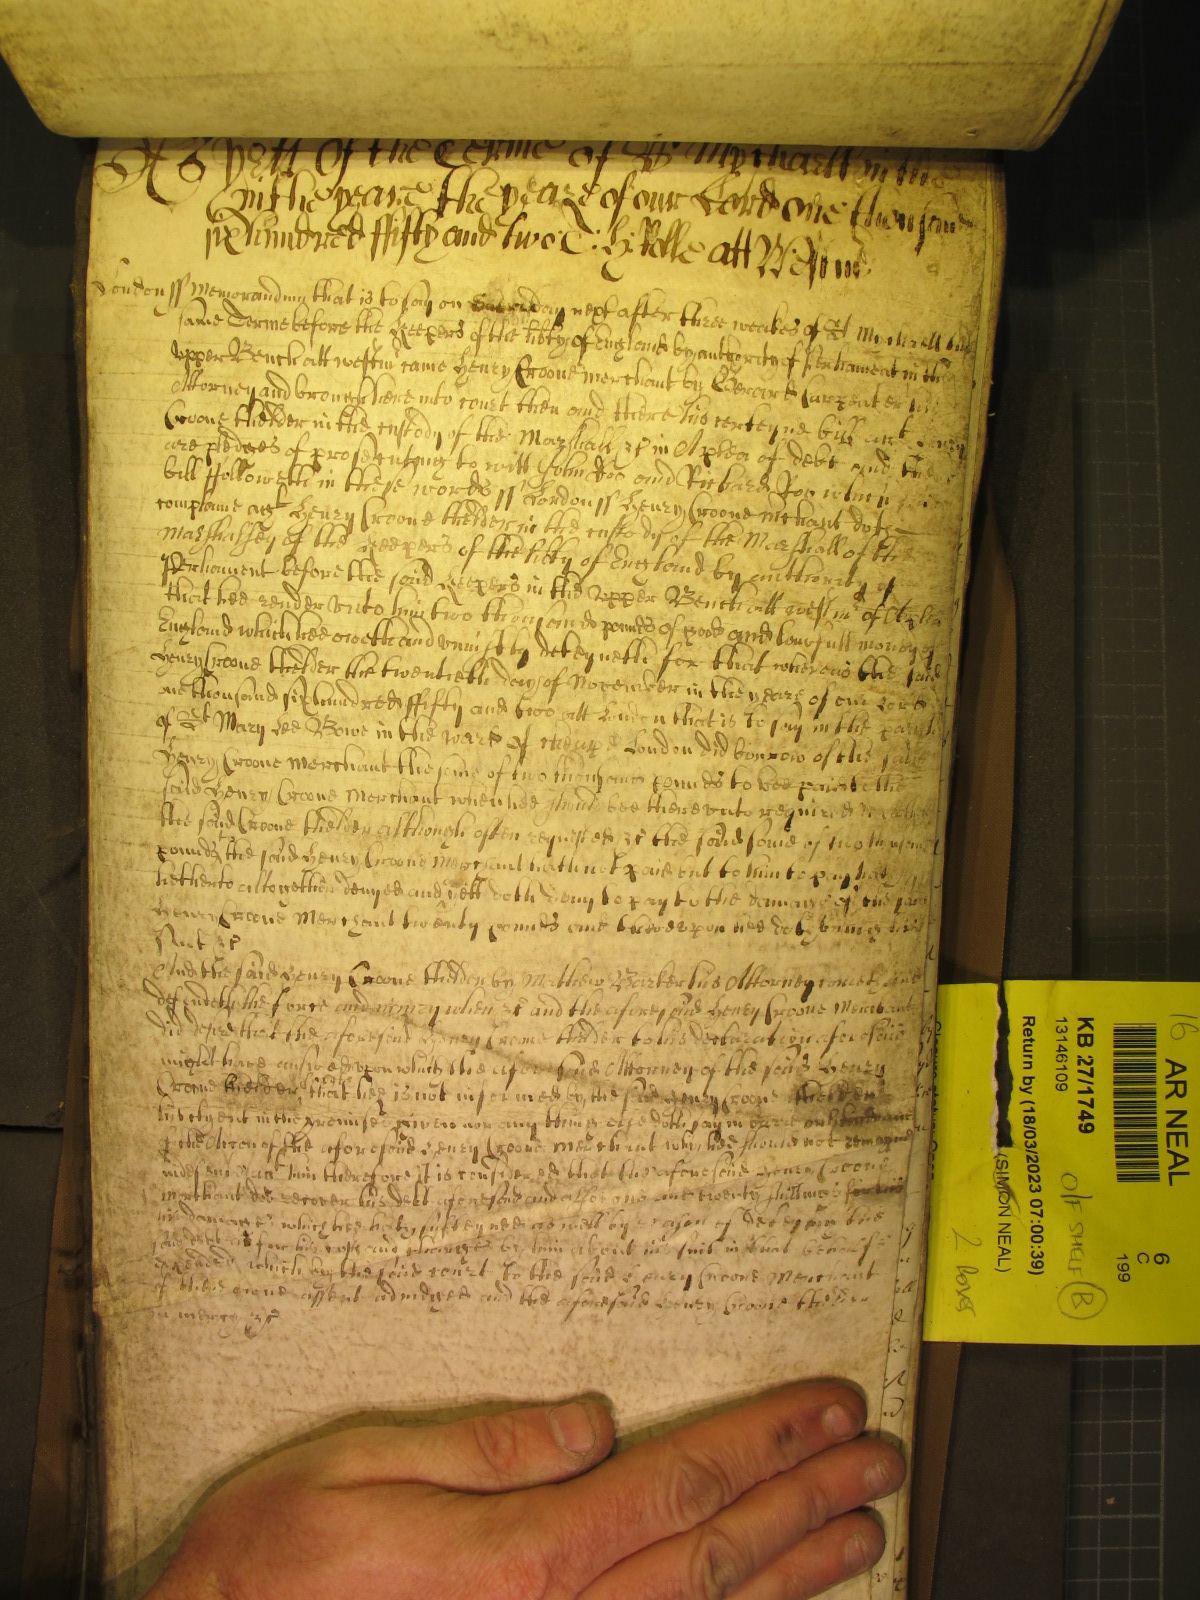 As yett of the Terme of St Mychaell in the
in the yeare the yeare of our Lord one thousand
six hundred ffifty and two T: H: Rolle att Westm
London ss Memorandum that is to say on next after three weekes of St Mychaell
same Terme before the Keepers of the lib'ty of England by authority of Parliament in the
Upper Bench att Westm' came Henry Croone merchant by Carpenter his
Attorney and brought here into court then and there his certeyne bill ag't Henry
Croone th'elder in the custody of the Marshall &c in A plea of debt and there
are pledges of prosecuting to witt John Doe and Richard Roe which
bill followeth in these words ss London ss Henry Croone m'chant doth
complaine ag't Henry Croone th'elder in the custody of the Marshall of the
Marshalsey of the Keepers of the lib'ty of England by authority of
Parliament before the said Keepers in the Upper Bench att Westm' of A plea
that hee render unto him two thousand pounds of good and lawfull money of
England which hee oweth and uniustly deteyneth for that whereas the said
Henry Croone th'elder the twentieth day of November in the yeare of our Lord
one thousand six hundred ffifty and two att London that is to say in the parish
of St Mary Lee Bowe in the ward of Cheape London did borrow of the said
Henry Croone Merchant the some of two thousand pounds to bee paid to the
said Henry Croone Merchant when hee should bee thereunto required
the said Croone th'elder although often requested &c the said some of two thousand
pounds the said Henry Croone Merchant hath not paid but to him to pay hath
hitherto altogether denyed and yett doth deny to pay to the damage of the said
Henry Croone Merchant twenty pounds and thereupon hee doth bring his
Suit &c
And the said Henry Croone th'elder by Mathew Barker his Attorney cometh and
defendeth the force and iniury when &c and the aforesaid Henry Croone Merchant
did desire that the foresaid Henry Croone th'elder to his declaration aforesaid
might have answered upon which the aforesaid Attorney of the said Henry
Croone th'elder that hee is not informed by the said Henry Croone th'elder
in the premises given nor any thing else doth say in
of the Accon of the aforesaid Henry Croone Merchant why hee should not
him therefore it is considered that the aforesaid Henry Croone
Merchant doe recover his debt aforesaid and alsoe one and twenty shillings for his
his damages which hee hath susteyned as well by reason of deteyning the
said debt as for his costs and charges by him about his suit in that behalfe
expended which by the said court to the said Henry Croone Merchant
of his owne assent adiudged and the aforesaid Henry Croone th'elder
in mercy &c
AR NEAL
6
C
199
KB 27/1749
13146109
Return by (18/03/2023 07:00:39)
(SIMON NEAL)
16
O/F SHELF B
2 boxes